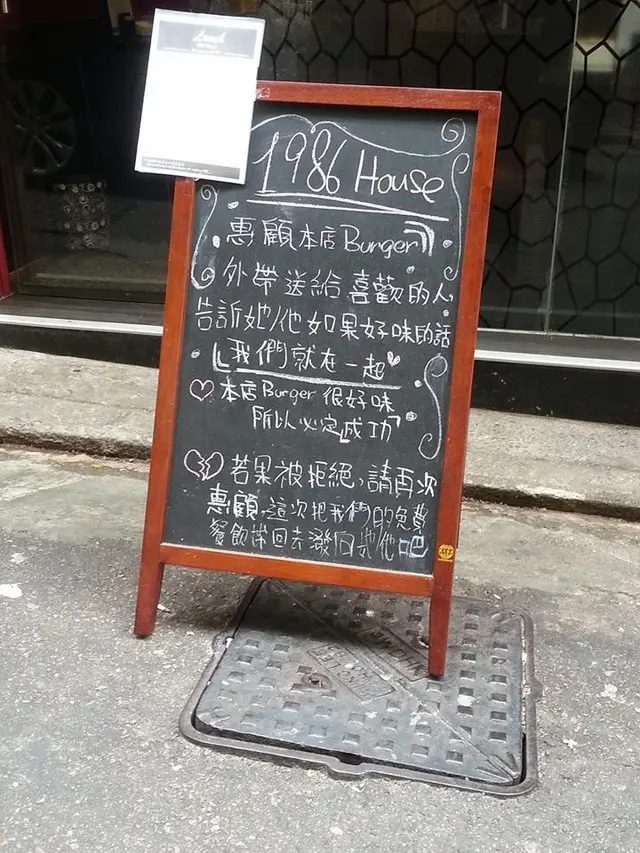 1986 House
惠顧本店Burger
外帶送給喜歡的人
告訴她/他如果好味的話
我們就在一起
本店Burger很好味
所以必定成功
若果被拒絕,請再次
惠顧,這次把我們的免費
餐飲帶回去潑向她/他吧